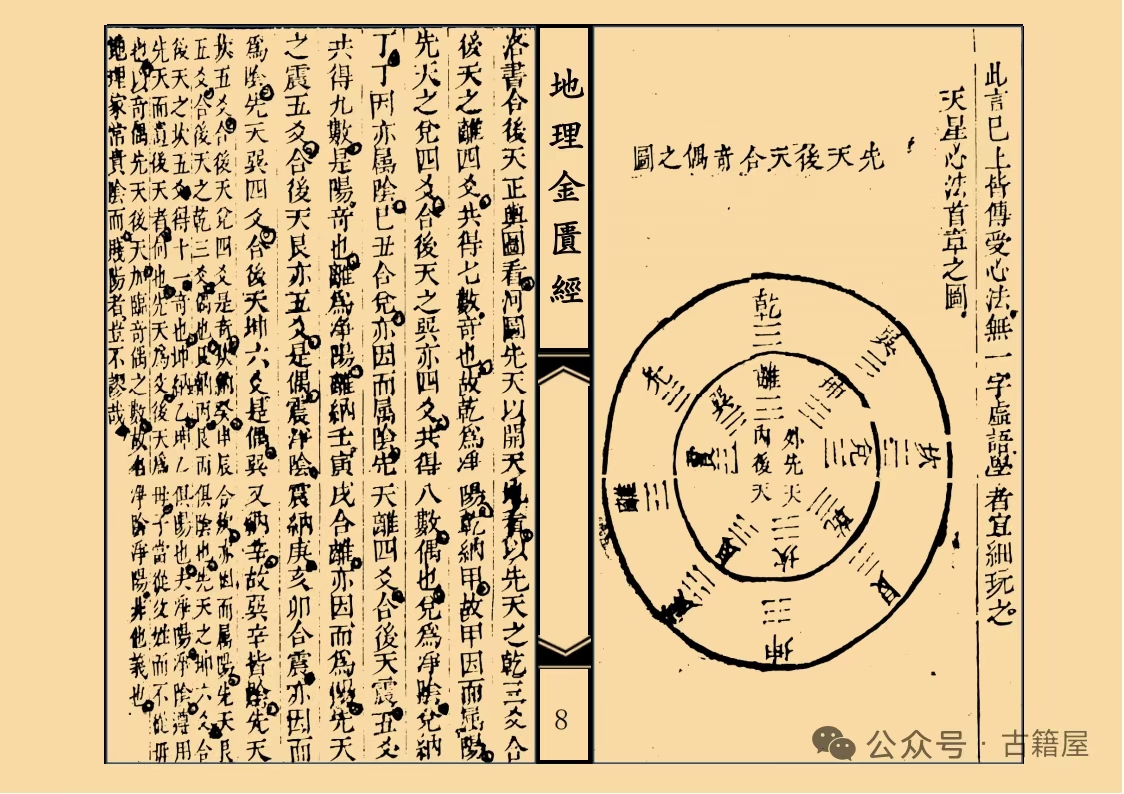 此言已上皆傳受心法無一字虛語學者宜細玩之
天星心法首章之圖
先天後天合奇偶之圖
乾
巽
坎
艮
坤
震
離
兌
離
坤
兌
乾
坎
艮
震
巽
外先天
內後天
地理金匱經
8
洛書合後天正輿圖看河圖先天以開天地看以先天之乾三爻合
後天之離四爻共得七數奇也故乾為净陽乾納甲故甲因而屬陽
先天之兌四爻合後天之巽亦四爻共得八數偶也兌為净陰兌納
丁丁因亦属陰巳丑合兌亦因而属陰先天離四爻合後天震五爻
共得九數是陽奇也離為净陽離納壬寅戌合離亦因而為陽先天
之震五爻合後天艮亦五爻是偶震净陰震納庚亥卯合震亦因而
為陰先天巽四爻合後天坤六爻是偶巽又納辛故巽辛皆陰先天
坎五爻合後天兌四爻是奇坎納癸申辰合坎亦因而属陽先天艮
五爻合後天之乾三爻偶也艮納丙艮丙俱陰也先天之坤六爻合
後天之坎五爻得十一奇也坤納乙坤乙俱陽也夫净陽净陰遵用
先天而遺後天者何也先天為父後天為母子當從父姓而不從母
也以奇偶先天後天加臨奇偶之數故有净陰净陽非他義也
地理家常貴陰而賤陽者豈不謬哉
公众号·古籍屋